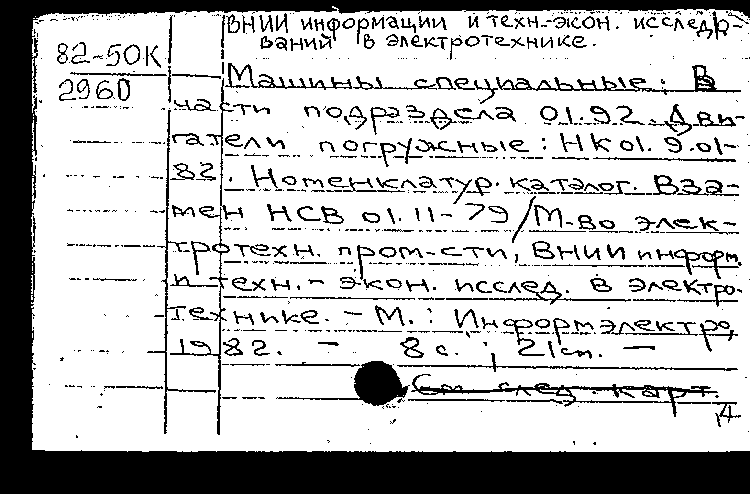 ВНИИ информации и техн.-экон. исследо-
ваний в электротехнике.
82-50К
2960
Машины специальные: В
части подраздела 01.92. Дви-
гатели погружные: НК 01.9.01-
82. Номенклатур. каталог. Вза-
мен НСВ 01.11-79 / М-во элек-
тротехн. пром-сти, ВНИИ информ.
и техн.- экон. исслед. в электро-
технике. - М.: Информэлектро,
1982. - 8 с. ; 21 см. -
См след. карт.
14